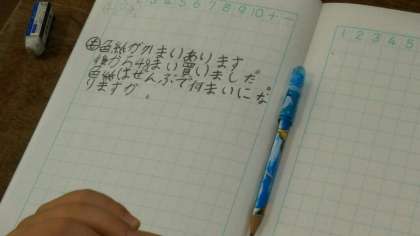 3 4 5 6 7 8 9 10 + −
色紙が まいあります
後から48まい買いました。
色紙はぜんぶで何まいにな
りますか。
1 2 3 4 5